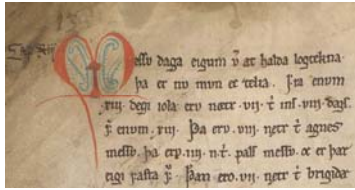 Messu daga eigum v at halda logtekna
þa er nu mun ec telia. Fra enum
xiii. degi iola eru nætr .vii. t ins .viii. dags.
f enum .xiii. Þa eru .viii. nætr t agnes
messo. þa ero .iiii. n. t. pals messo. oc er þar
eigi fasta f. Þaðan ero .vii. nætr t brigidar